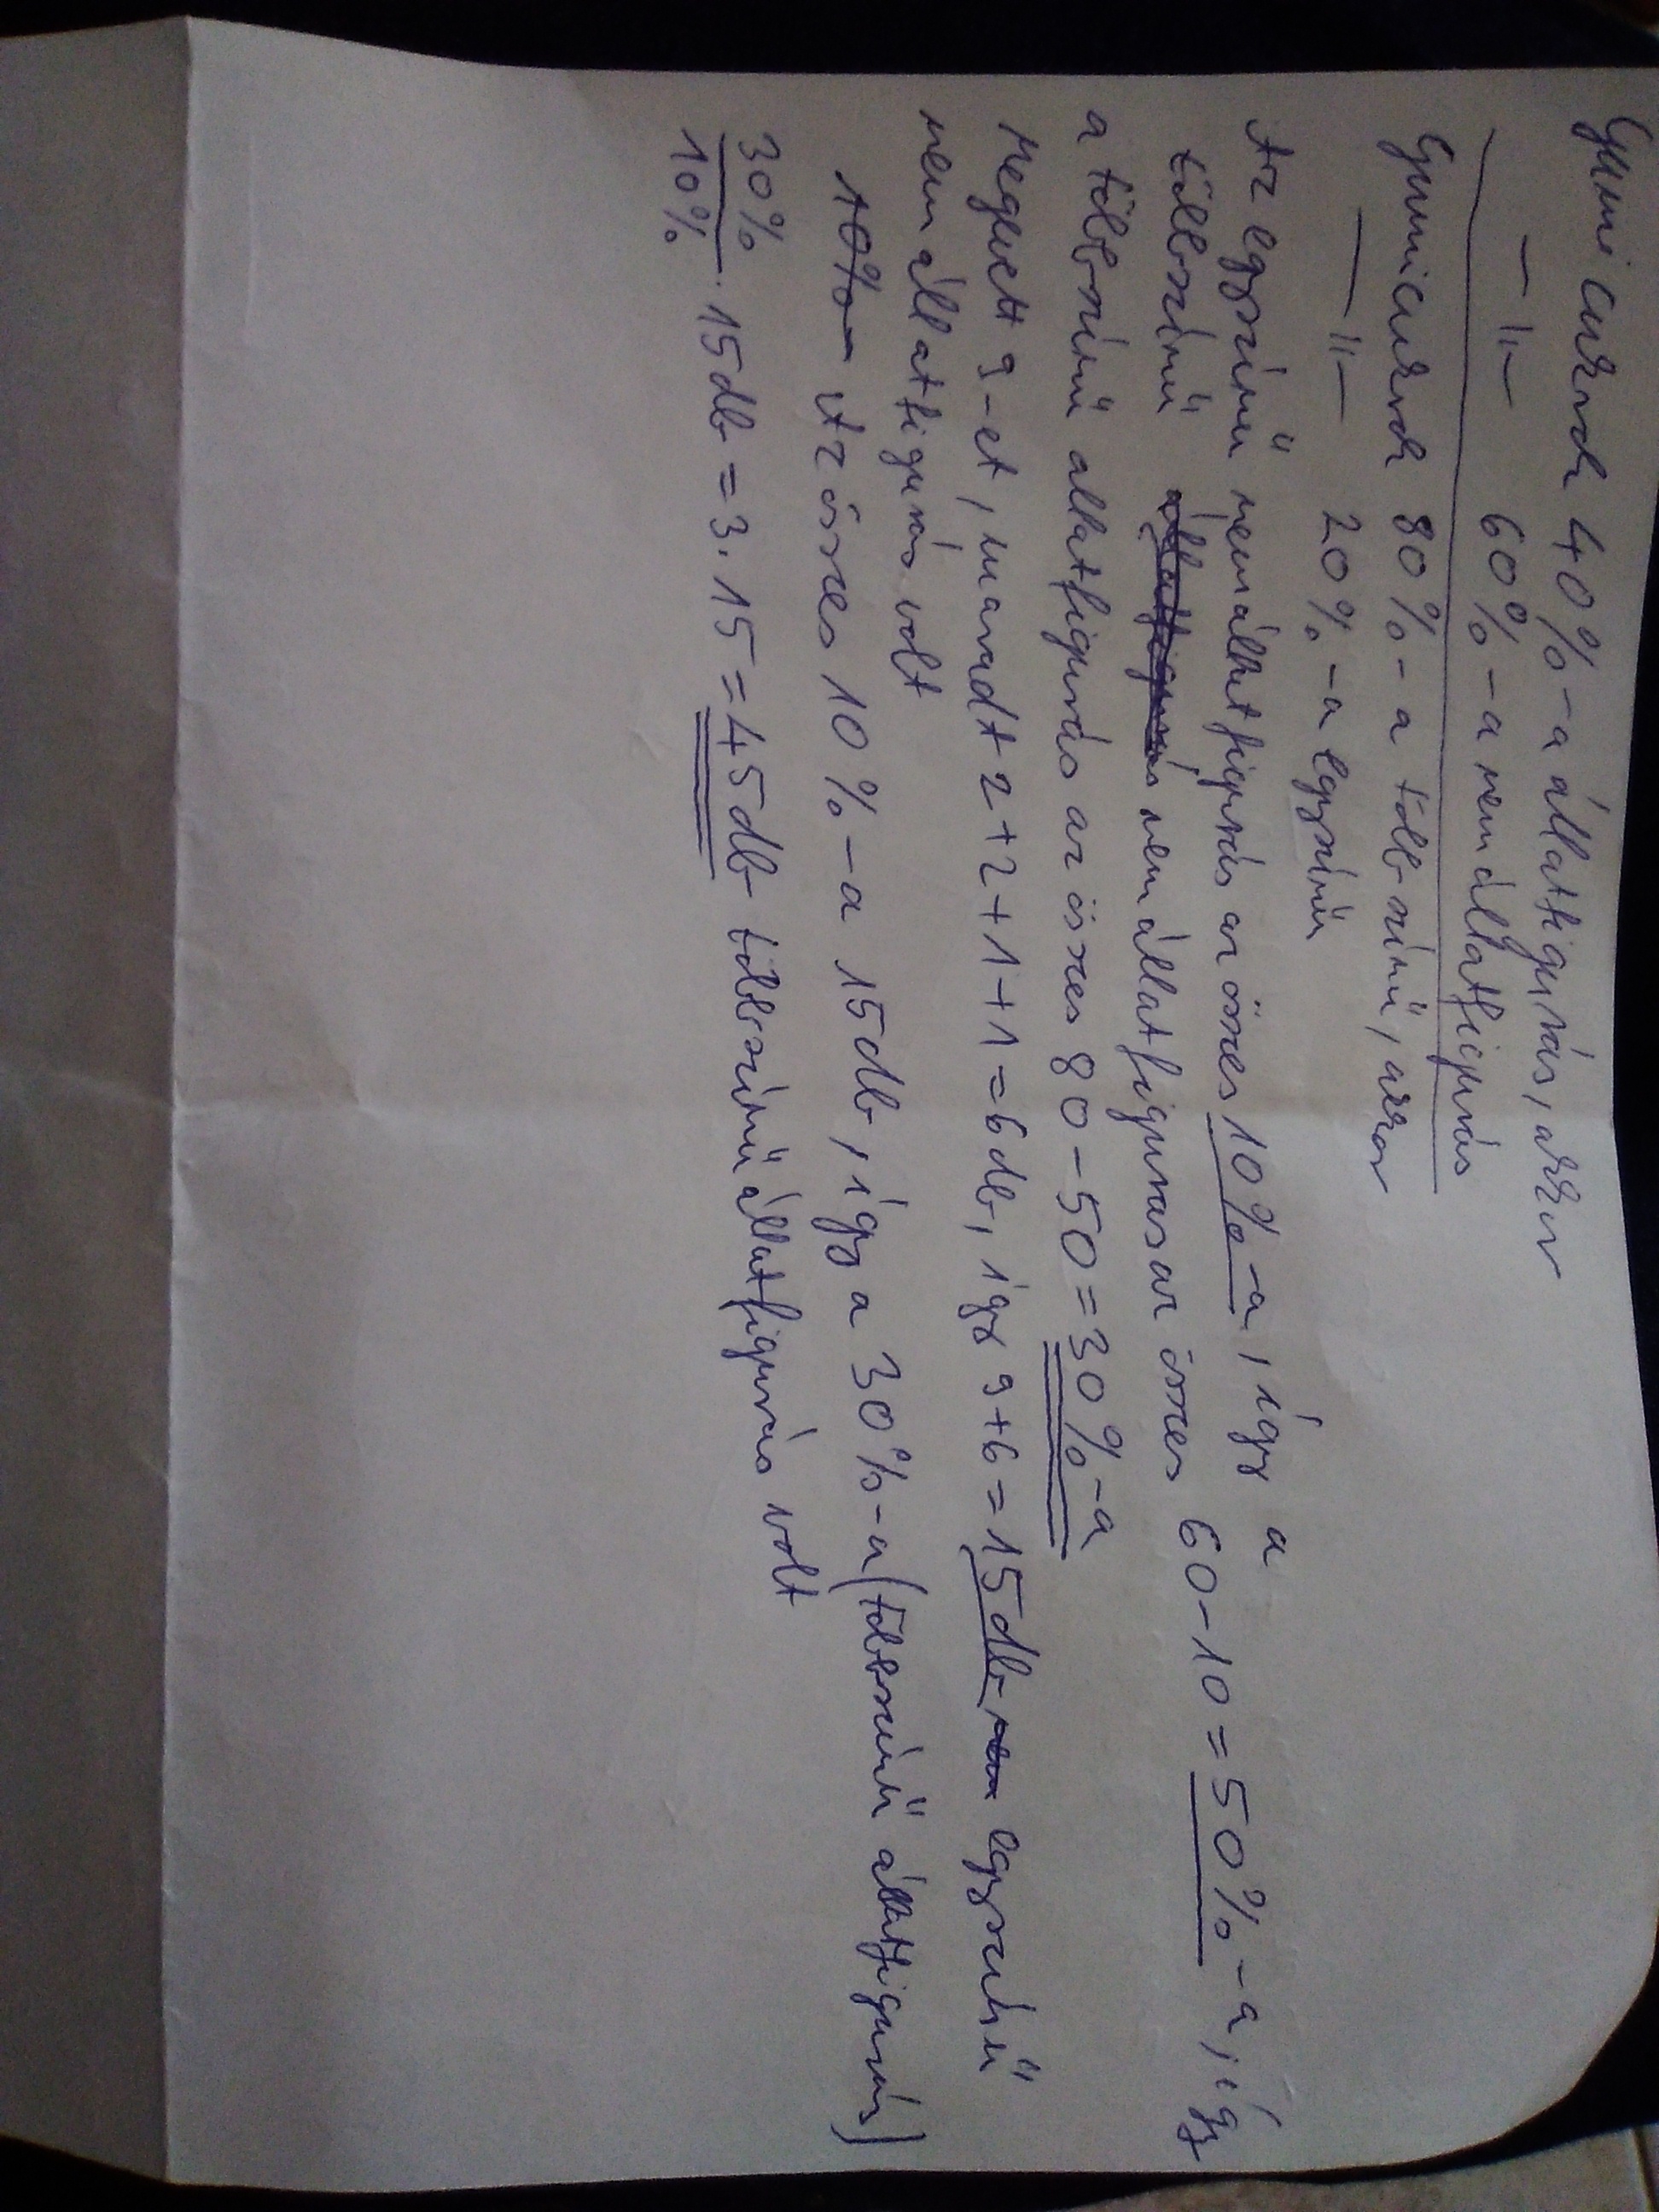 Gumicurok 40%-a állatfigurás, azaz
—〃— 60%-a nem állatfigurás
Gumicukrok 80%-a többszínű, azaz
—〃— 20%-a egyszínű
Az egyszínű nem állatfigurás az összes 10%-a, így a
többszínű állatfigurás nem állatfiguras az összes 60-10=50%-a, így
a többszínű állatfigurás az összes 80-50=30%-a
Megevett 9-et, maradt 2+2+1+1=6db, így 9+6=15db nem egyszínű
nem állatfigurás volt
10% Az összes 10%-a 15db, így a 30%-a (többszínű állatfigurás)
30%/10% · 15db = 3·15 = 45db többszínű állatfigurás volt